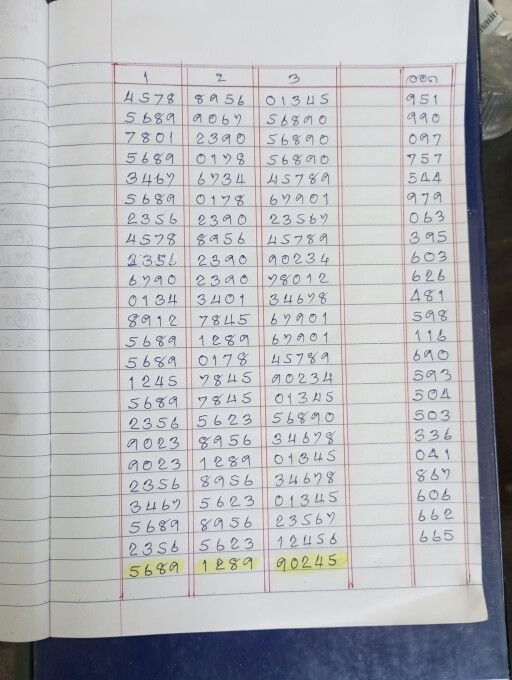 1 2 3 ထွက်
4578 8956 01345 951
5689 9067 56890 990
7801 2390 56890 097
5689 0178 56890 757
3467 6734 45789 544
5689 0178 67901 979
2356 2390 23567 063
4578 8956 45789 395
2356 2390 90234 603
6790 2390 78012 626
0134 3401 34678 481
8912 7845 67901 598
5689 1289 67901 116
5689 0178 45789 690
1245 7845 90234 593
5689 7845 01345 504
2356 5623 56890 503
9023 8956 34678 336
9023 1289 01345 041
2356 8956 34678 867
3467 5623 01345 606
5689 8956 23567 662
2356 5623 12456 665
5689 1289 90245